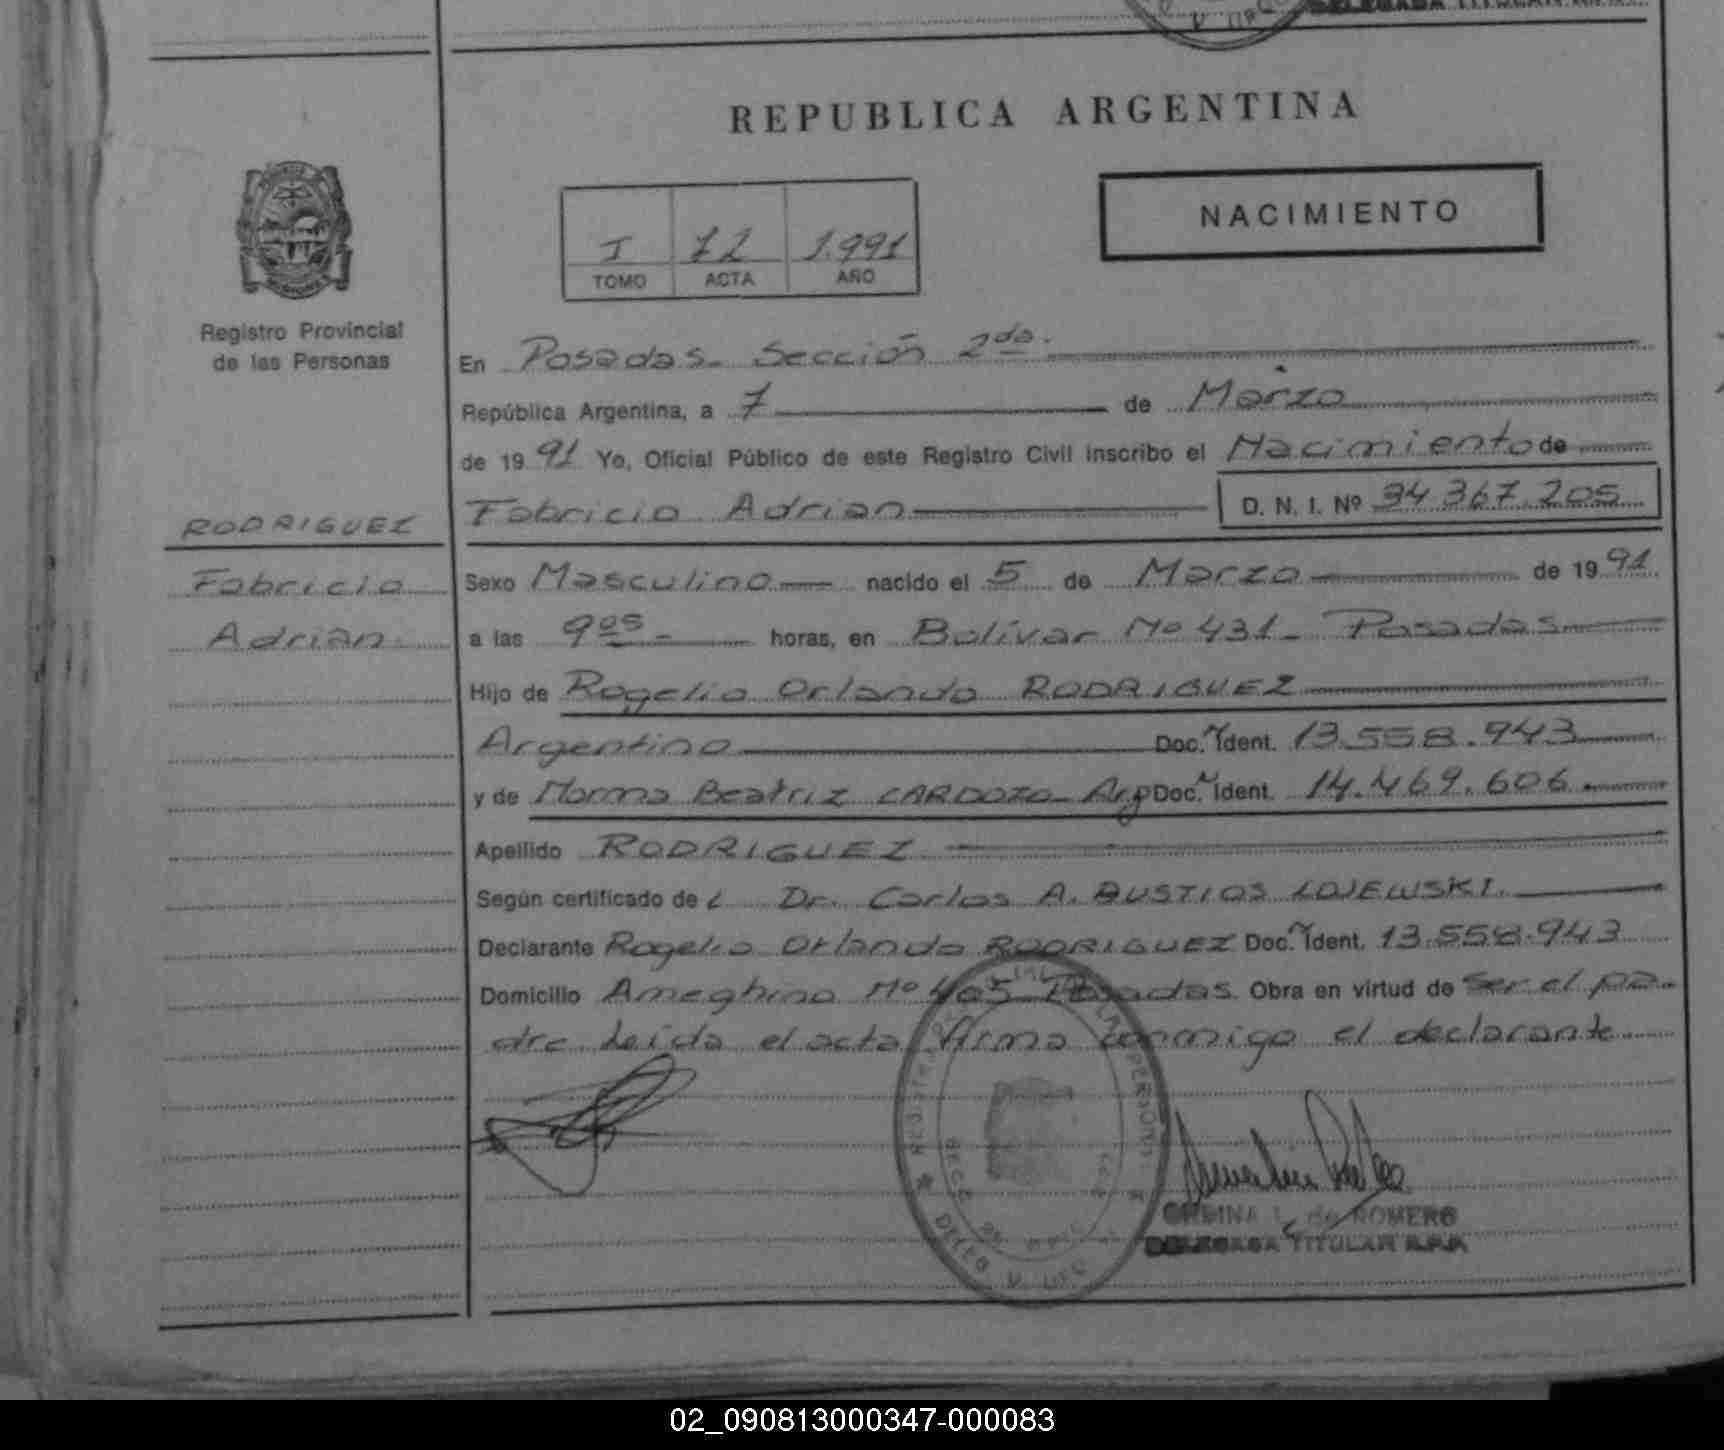 REPUBLICA ARGENTINA
NACIMIENTO
I 72 1.991
TOMO ACTA AÑO
Registro Provincial
de las Personas
En Posadas - Sección 2da.
República Argentina, a 7 de Marzo
de 1991 Yo, Oficial Público de este Registro Civil inscribo el Nacimiento de
Fabricio Adrian D. N. I. Nº 34.367.205
RODRIGUEZ
Fabricio
Adrian
Sexo Masculino nacido el 5 de Marzo de 1991
a las 905 - horas, en Bolívar Nº 431 - Posadas
Hijo de Rogelio Orlando RODRIGUEZ
Argentino Doc. Ident. 13.558.943
y de Norma Beatriz CARDOZO - Arg Doc. Ident. 14.469.606
Apellido RODRIGUEZ
Según certificado del Dr. Carlos A. BUSTIOS LOJEWSKI
Declarante Rogelio Orlando RODRIGUEZ Doc. Ident. 13.558.943
Domicilio Ameghino Nº 405 Posadas. Obra en virtud de ser el pa-
dre Leída el acta firma conmigo el declarante
de ROMERO
DELEGADA TITULAR R.P.P.
02_090813000347-000083